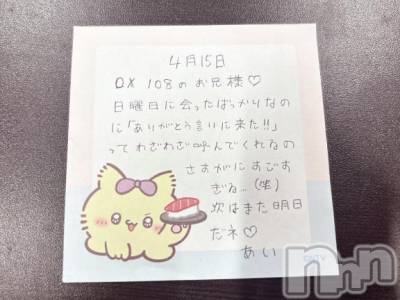 4月15日
DX 108のお兄様♡
日曜日に会ったばっかりなの
に「ありがとう言いに来た!!」
ってわざわざ呼んでくれるの
さすがにすごす
ぎな…(笑)
次はまた明日
だネ♡
あい
©NTV
Nnn